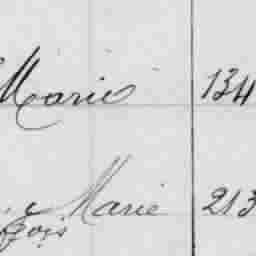 Marie 134
Marie 213
çois